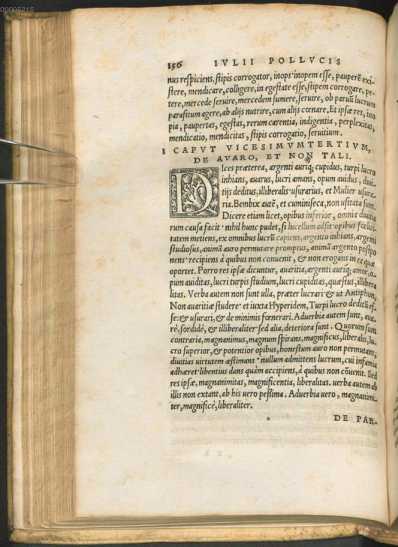 00005215
156 IVLII POLLVCIS
nus respiciens, stipis corrogator, inops inopem esse, pauperē exi-
stere, mendicare, colligere, in egestate esse, stipem corrogare, pe-
tere, mercede seruire, mercedem sumere, seruire, ob paruū lucrum
parasitum agere, ab alijs nutrire, cum alijs coenare. Et ipsæ res, ino
pia, paupertas, egestas, rerum carentia, indigentia, perplexitas,
mendicatio, mendicitas, stipis corrogatio, seruitium.
CAPVT VICESIMVMTERTIVM,
DE AVARO, ET NON TALI.
DIces præterea, argenti auriq; cupidus, turpi lucro
inhians, auarus, lucri amans, opum auidus, diui-
tijs deditus, illiberalis usurarius, et Mulier usura
ria. Bembix autē, et cuminiseca, non usitata sunt.
Dicere etiam licet, opibus inferior, omnia diuitia
rum causa facit nihil hunc pudet, si lucellum adsit opibus felici-
tatem metiens, ex omnibus lucrū capiens, argento inhians, argenti
studiosus, animā auro permutare promptus, animā argento
nens recipiens à quibus non conuenit, & non erogans in
oportet. Porro res ipsæ dicuntur, auaritia, argenti auriq; amor, o-
pum auiditas, lucri turpis studium, lucri cupiditas, quæstus, illibera
litas. Verba autem non sunt illa, præter lucrari & ut Antiphon,
Non auaritiæ studere et iuxta Hyperidem, Turpi lucro deditū es-
se: & usurari, & de minimis fœnerari. Aduerbia autem sunt, aua-
rè, sordidè, & illiberaliter sed alia, deteriora sunt. Quorum sunt
contraria, magnanimus, magnum spirans, magnificus, liberalis, lu-
cro superior, & potentior opibus, honestum auro non permutans,
diuitias uirtutem æstimans nullum admittens lucrum, cui infamia
adhæret libentius dans quàm accipiens, à quibus non cōuenit. Sed
res ipsæ, magnanimitas, magnificentia, liberalitas. uerba autem ab
illis non extant, ab his uero pessima. Aduerbia uero, magnanimi-
ter, magnificè, liberaliter.
DE PAR-